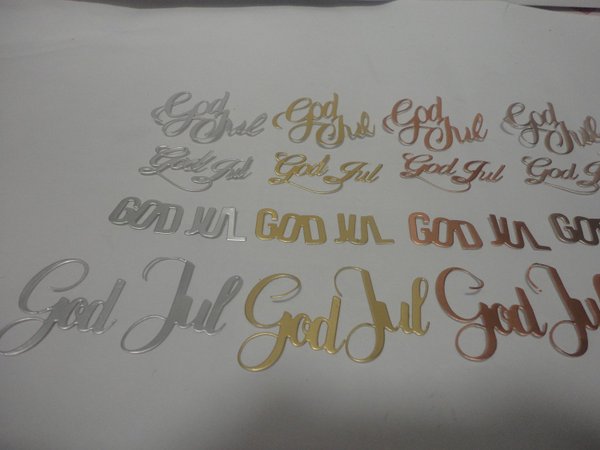 God Jul God Jul God Jul God Jul
God Jul God Jul God Jul God Jul
GOD JUL GOD JUL GOD JUL GOD
God Jul God Jul God Jul